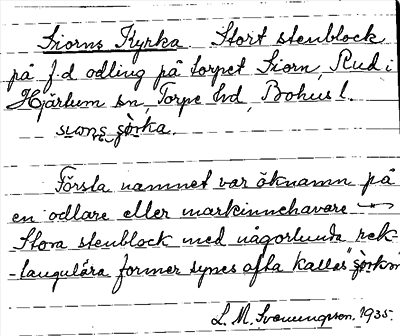 Siorns Kyrka. Stort stenblock
på f.d odling på torpet Siorn, Rud i
Hjärtum sn, Torpe hd, Bohus l.
görka.
Första namnet var öknamn på
en odlare eller markinnehavare
Stora stenblock med någorlunda rek-
-tangulära former synes ofta kallas
L. M. Svenungson. 1935.